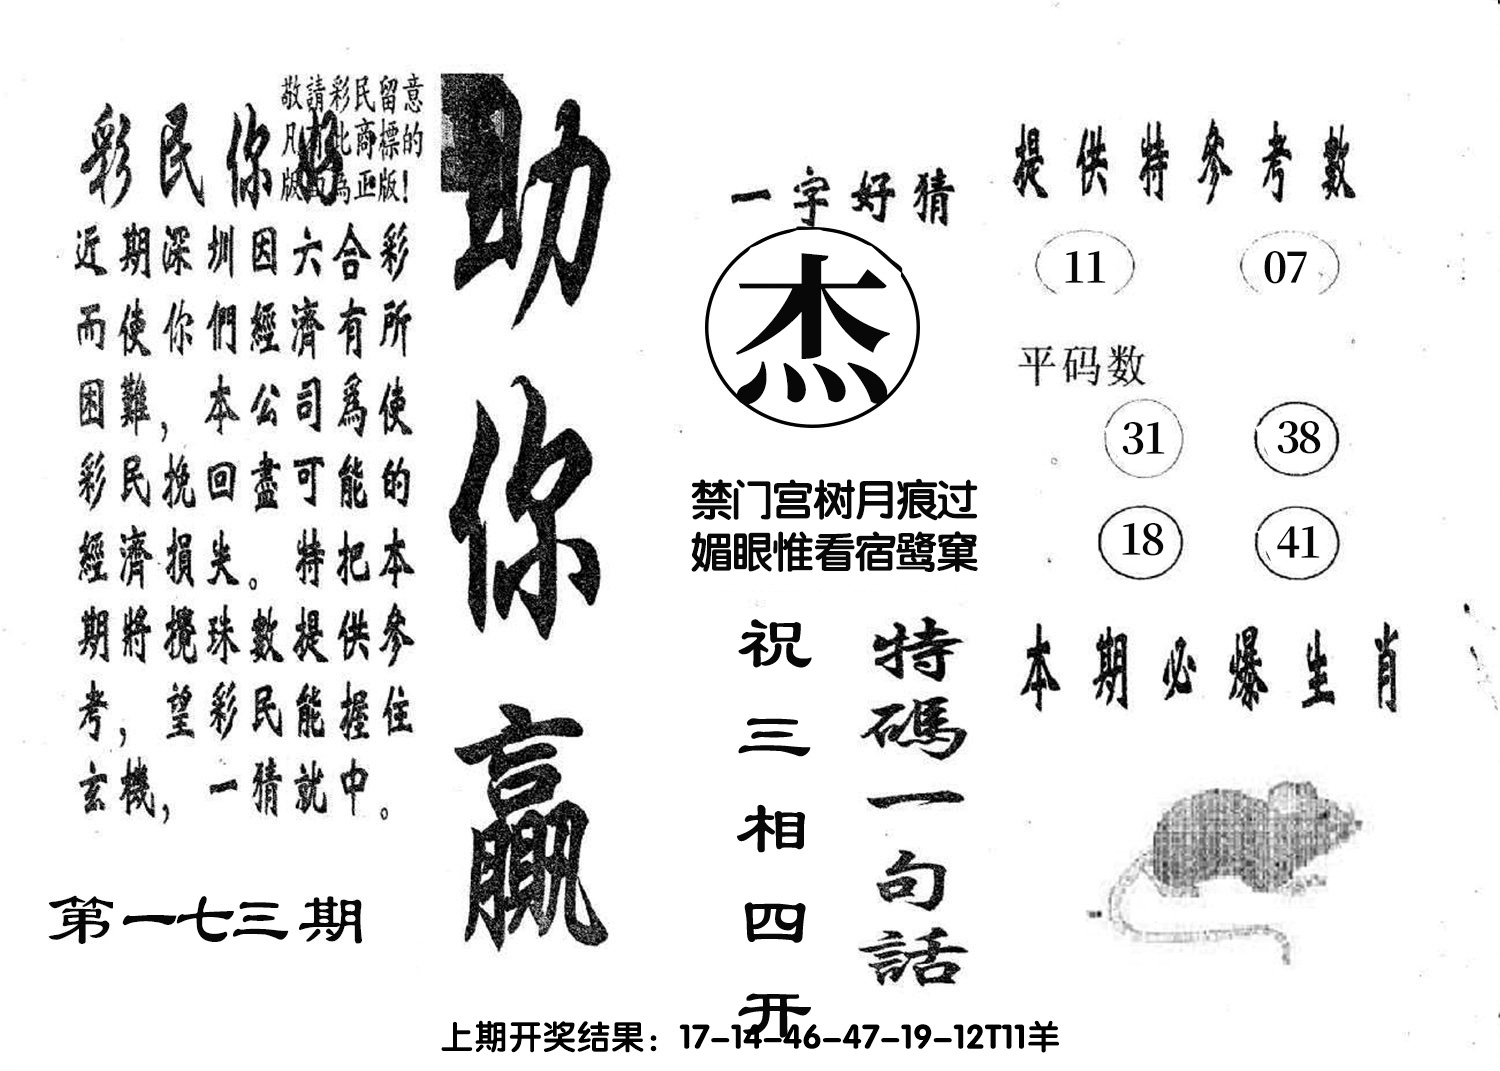 敬請彩民留意
凡有此商標的
版面為正版!
彩民你好
近期深圳因六合彩
而使你們經濟有所
困難，本公司爲使
彩民挽回盡可能的
經濟損失。特把本
期將攪珠數提供參
考，望彩民能握住
玄機，一猜就中。
第一七三期
助你贏
一字好猜
杰
禁门宫树月痕过
媚眼惟看宿鹭窠
特碼一句話
祝三相四开
提供特參考數
11 07
平码数
31 38
18 41
本期必爆生肖
上期开奖结果：17-14-46-47-19-12T11羊